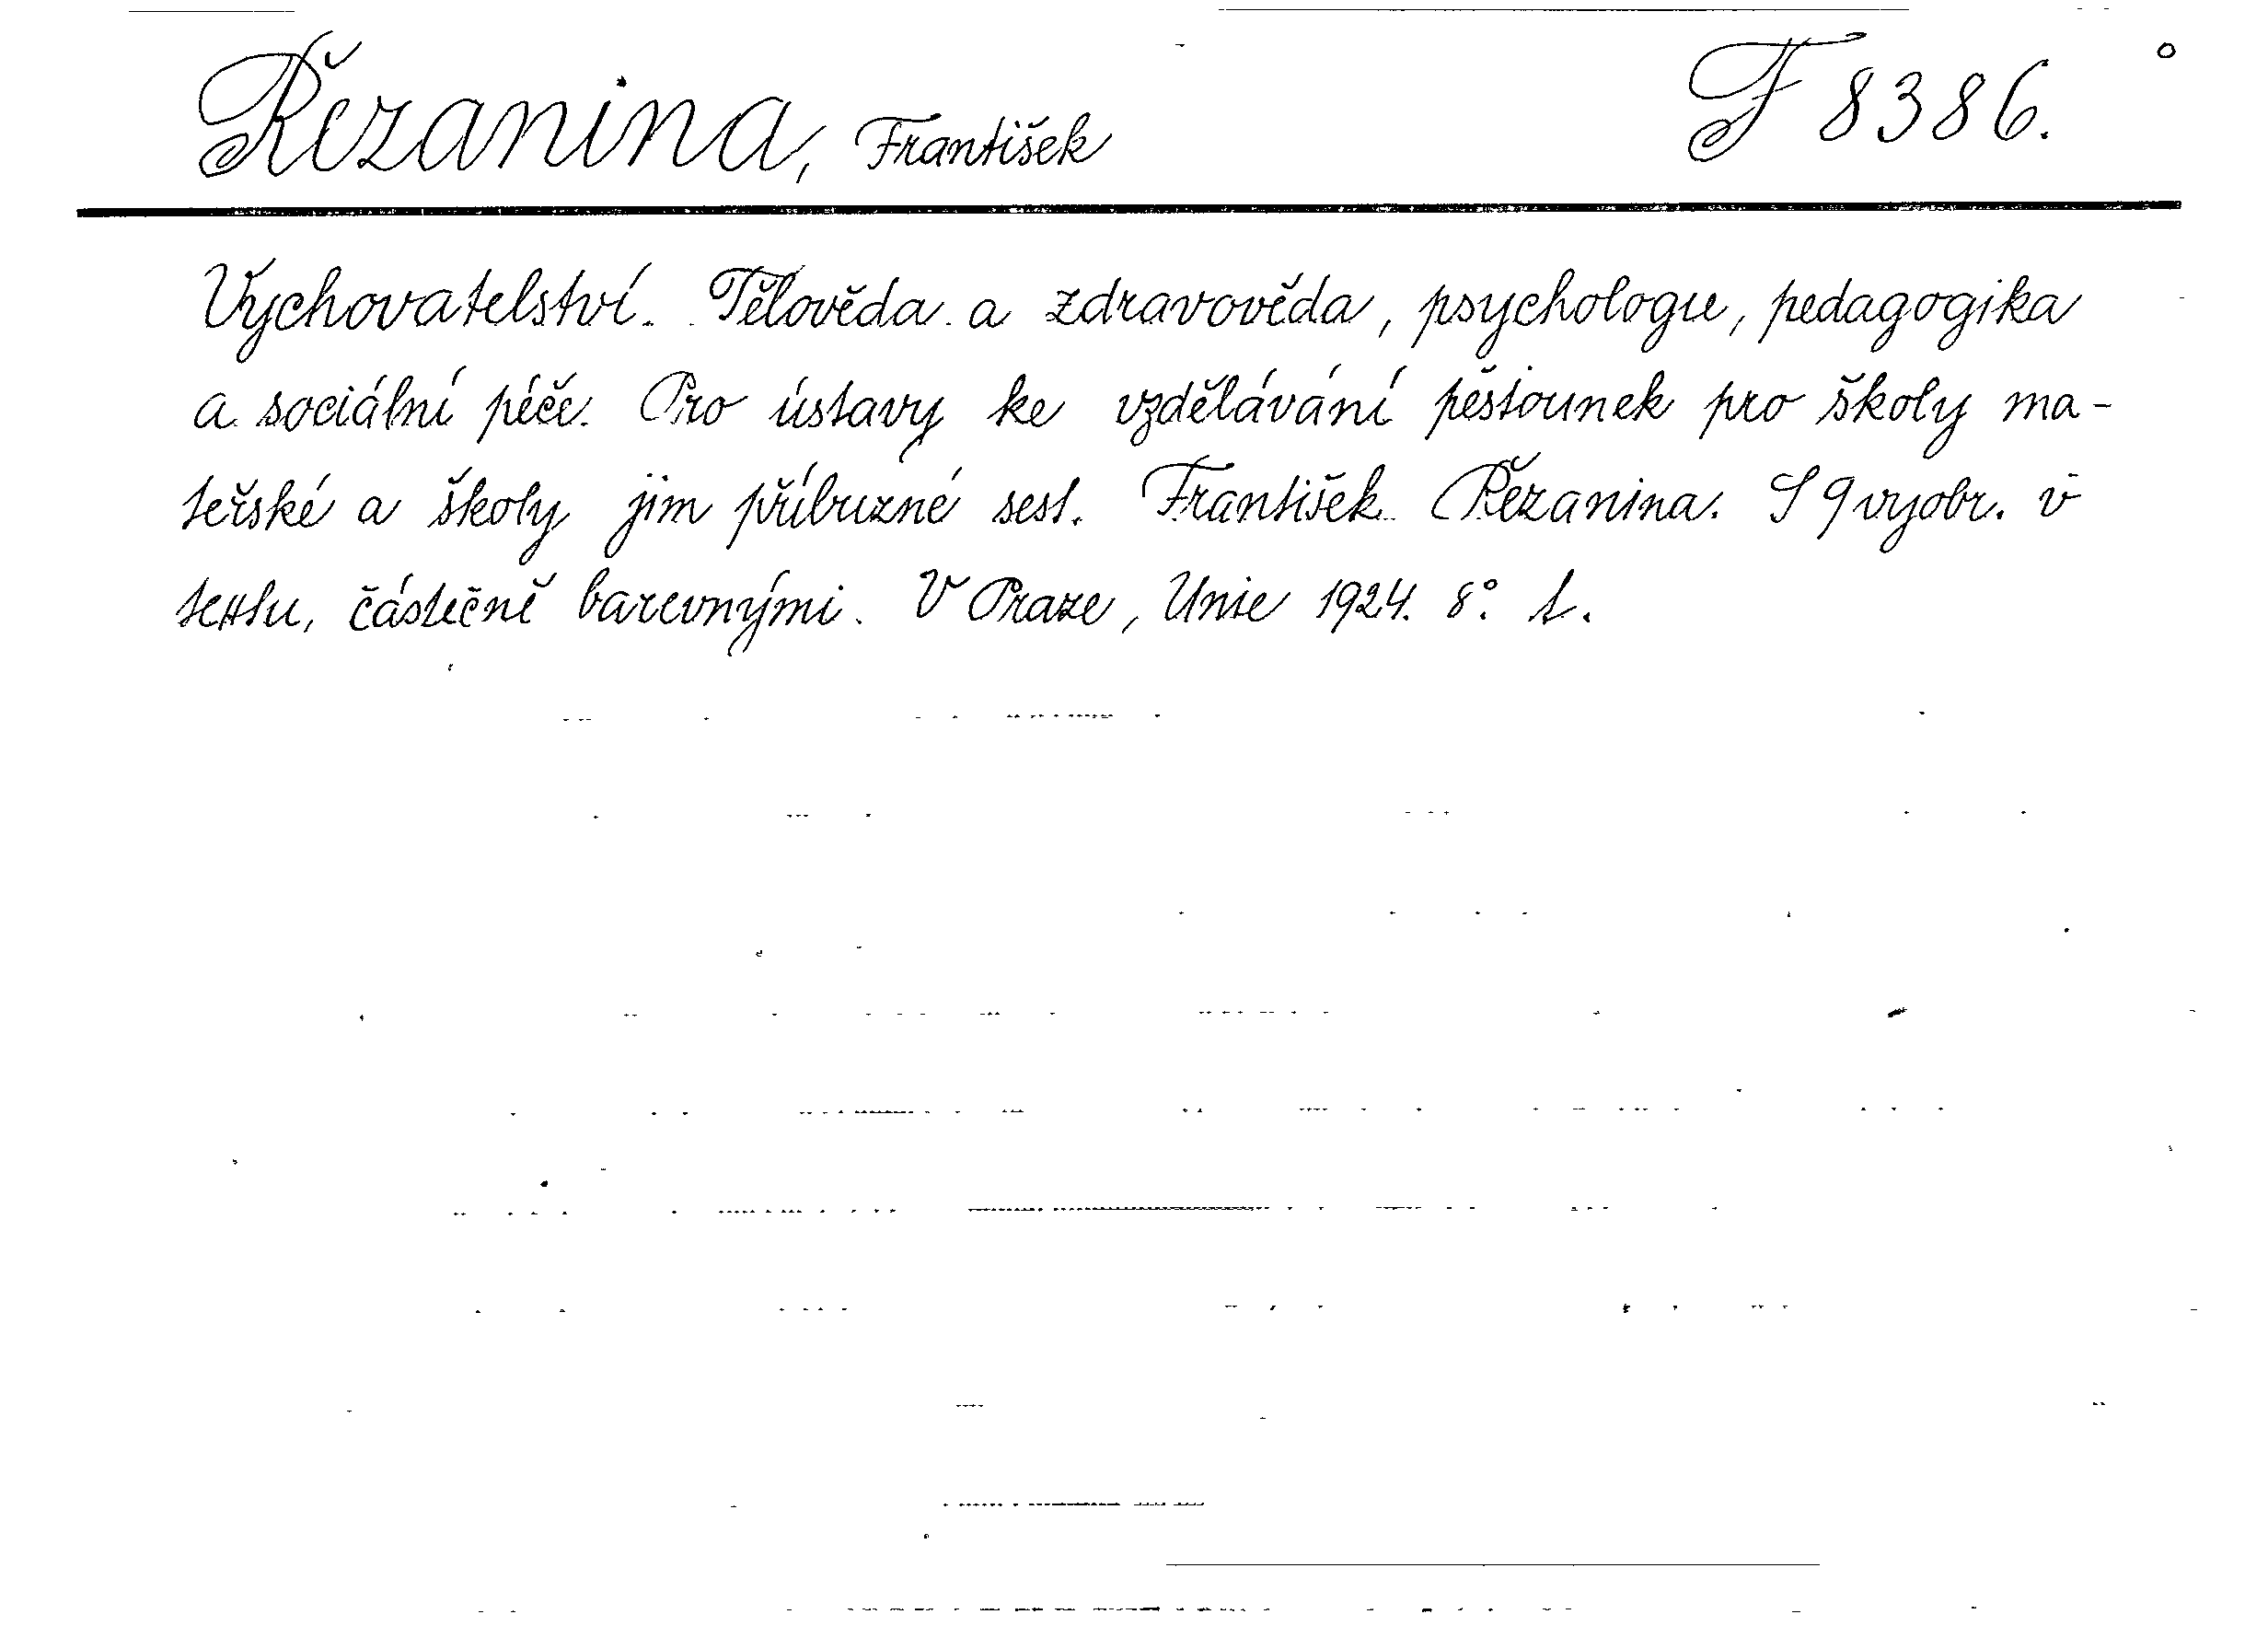 Řezanina, František F 8386.
Vychovatelství. Tělověda a zdravověda, psychologie, pedagogika
a sociální péče. Pro ústavy ke vzdělávání pěstounek pro školy ma-
teřské a školy jim příbuzné sest. František Řezanina. S 9 vyobr. v
textu, částečně barevnými. V Praze, Unie 1924. 8°.